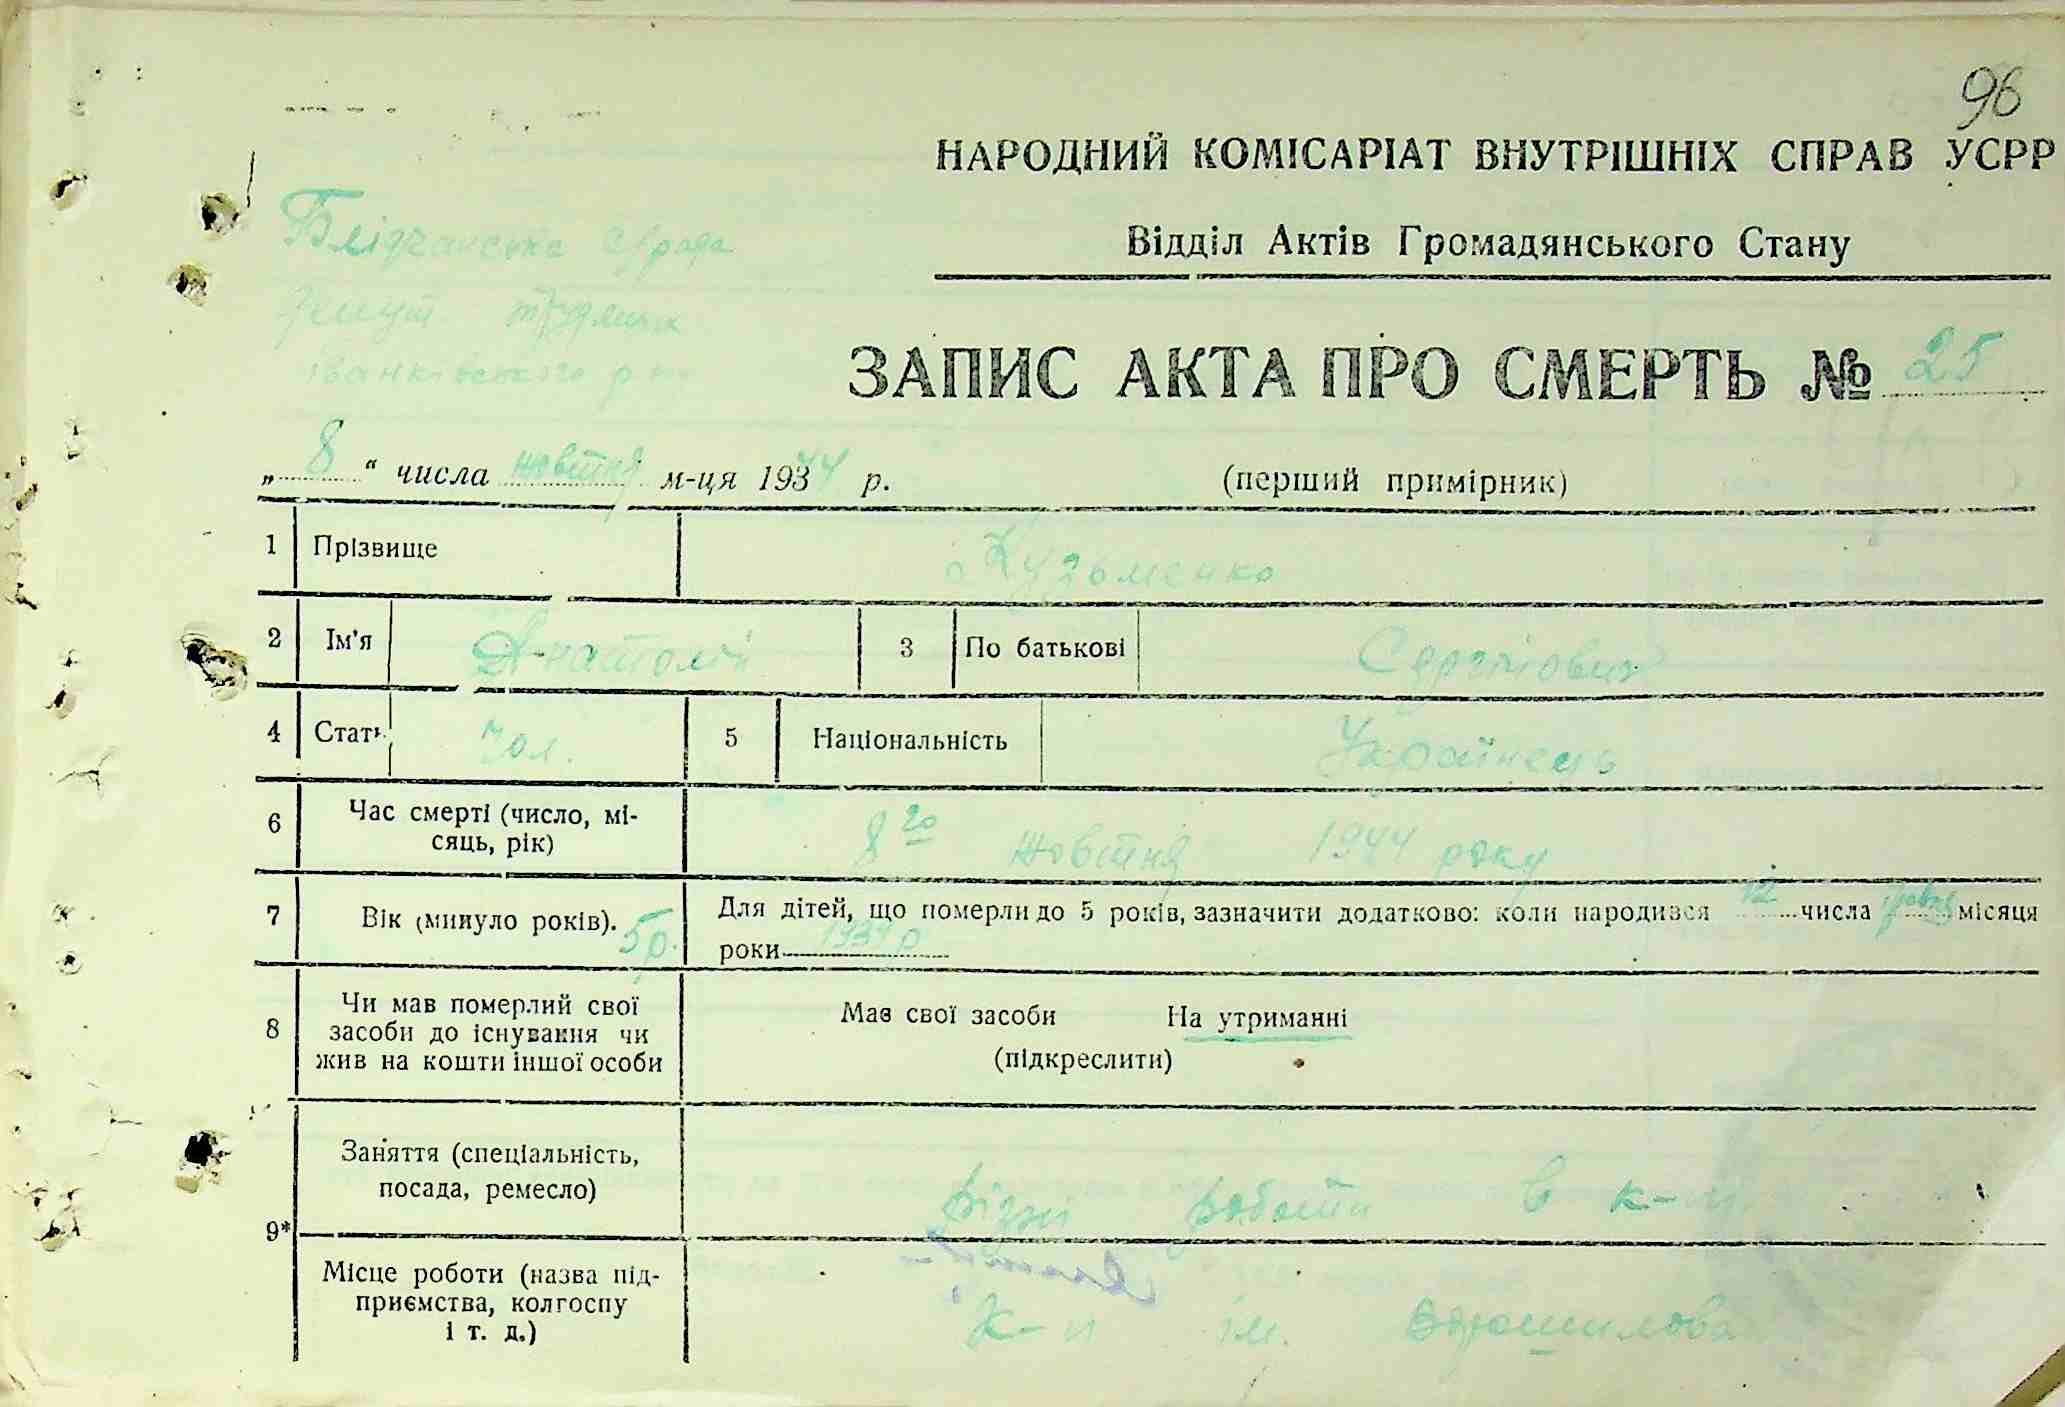 96
НАРОДНИЙ КОМІСАРІАТ ВНУТРІШНІХ СПРАВ УСРР
Блідчанська с/рада
Відділ Актів Громадянського Стану
іванківського р-ну
ЗАПИС АКТА ПРО СМЕРТЬ № 25
„ 8 “ числа жовтня м-ця 1944 р. (перший примірник)
1 Прізвище Кузьменко
2 Ім'я Анатолій 3 По батькові Сергійович
4 Стать Чол. 5 Національність Українець
6 Час смерті (число, мі-
сяць, рік) 8го жовтня 1944 року
7 Вік (минуло років). 5р. Для дітей, що померли до 5 років, зазначити додатково: коли народився 12 числа місяця
роки 1939 р
8 Чи мав померлий свої
засоби до існування чи
жив на кошти іншої особи
Мав свої засоби На утриманні
(підкреслити)
9* Заняття (спеціальність,
посада, ремесло) різні роботи в к-пі
Місце роботи (назва під-
приємства, колгоспу
і т. д.) К-п ім. Ворошилова